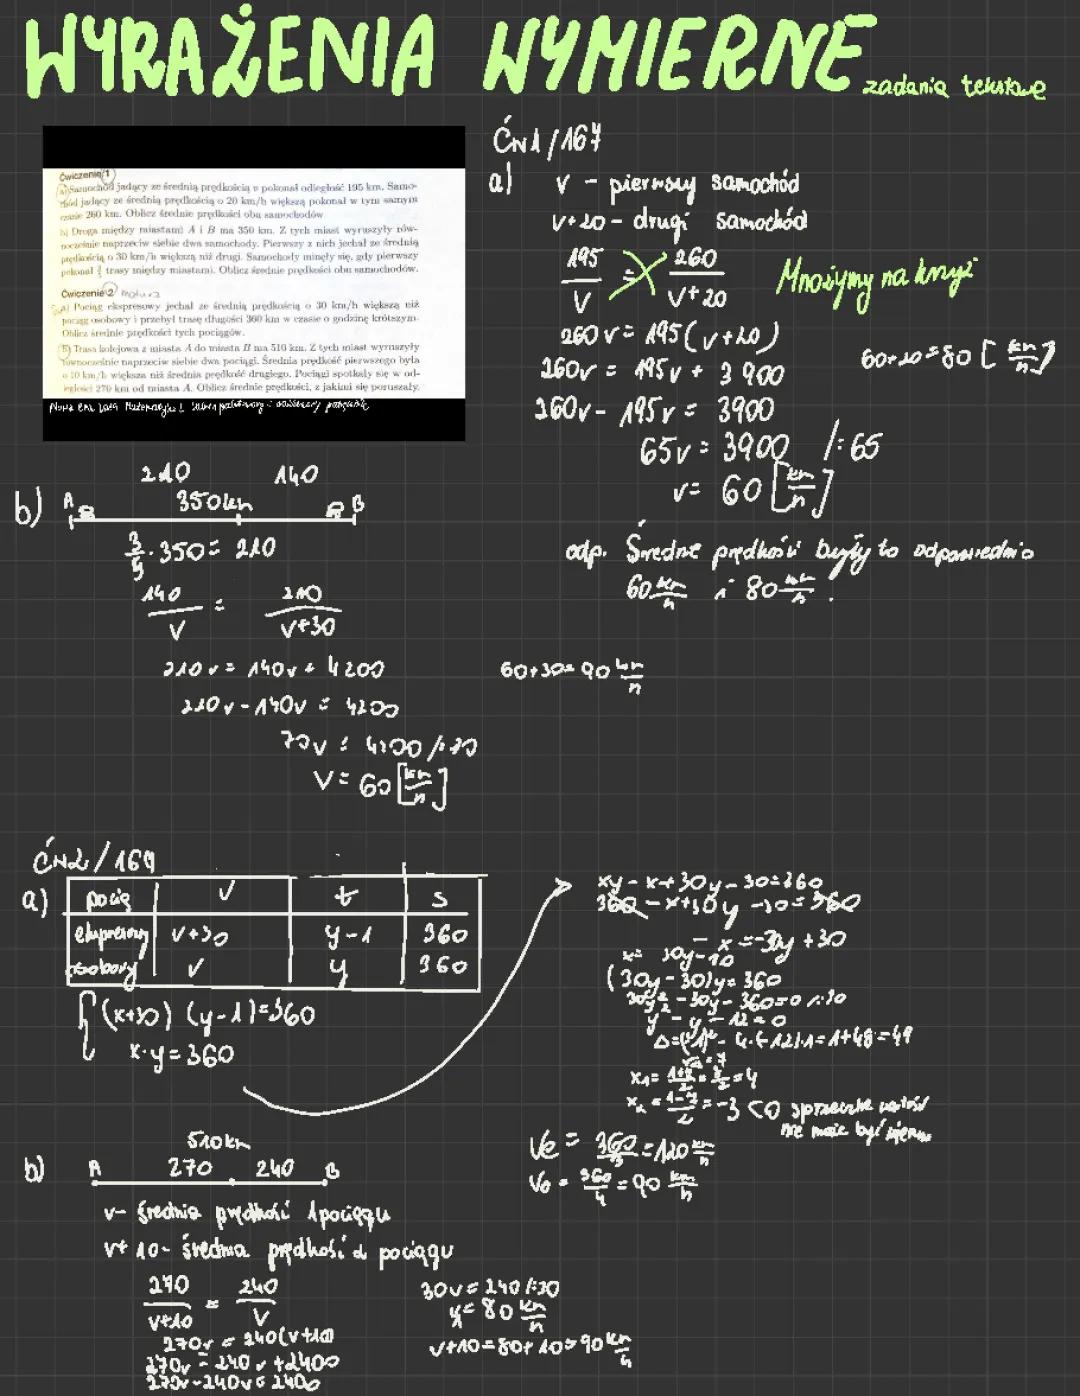 WYRAŻENIA WYMIERNE zadania tekstowe
Ćwiczenie 1
a) Samochód jadący ze średnią prędkością v pokonał odległość 195 km. Samo-
chód jadący ze średnią prędkością o 20 km/h większą pokonał w tym samym
czasie 260 km. Oblicz średnie prędkości obu samochodów.
b) Droga między miastami A i B ma 350 km. Z tych miast wyruszyły rów-
nocześnie naprzeciw siebie dwa samochody. Pierwszy z nich jechał ze średnią
prędkością o 30 km/h większą niż drugi. Samochody minęły się, gdy pierwszy
pokonał 3/5 trasy między miastami. Oblicz średnie prędkości obu samochodów.
Ćwiczenie 2
a) Pociąg ekspresowy jechał ze średnią prędkością o 30 km/h większą niż
pociąg osobowy i przebył trasę długości 360 km w czasie o godzinę krótszym.
Oblicz średnie prędkości tych pociągów.
b) Trasa kolejowa z miasta A do miasta B ma 510 km. Z tych miast wyruszyły
równocześnie naprzeciw siebie dwa pociągi. Średnia prędkość pierwszego była
o 10 km/h większa niż średnia prędkość drugiego. Pociągi spotkały się w od-
ległości 270 km od miasta A. Oblicz średnie prędkości, z jakimi się poruszały.
Ćw1/167
a) v - pierwszy samochód
v+20 - drugi samochód
195/v = 260/v+20
Mnożymy na krzyż
260v = 195(v+20)
260v = 195v + 3900
260v - 195v = 3900
65v = 3900 /:65
v = 60 [km/h]
60+20=80 [km/h]
odp. Średnie prędkości były to odpowiednio
60 km/h i 80 km/h.
b) 210 140
A 350km B
3/5 · 350 = 210
140/v = 210/v+30
210v = 140v + 4200
210v - 140v = 4200
70v = 4200 /:70
V = 60 [km/h]
60+30=90 km/h
Ćw2/169
a) pociąg v t s
ekspresowy v+30 y-1 360
osobowy v y 360
(x+30)(y-1)=360
x·y=360
xy-x+30y-30=360
360-x+30y-30=360
-x=-30y+30
x=30y-30
(30y-30)y=360
30y²-30y-360=0 /:30
y²-y-12=0
Δ=(-1)²-4·(-12)·1=1+48=49
√Δ=7
x₁= 1+7/2 = 8/2 =4
x₂ = 1-7/2 = -3 <0 sprzeczne
nie może być
Ve = 360/3 = 120 km/h
Vo = 360/4 = 90 km/h
b) 510km
A 270 240 B
v- średnia prędkość 1 pociągu
v+10- średnia prędkość 2 pociągu
270/v+10 = 240/v
270v = 240(v+10)
270v = 240v + 2400
270v-240v = 2400
30v = 240 /:30
v = 80 km/h
v+10=80+10=90 km/h